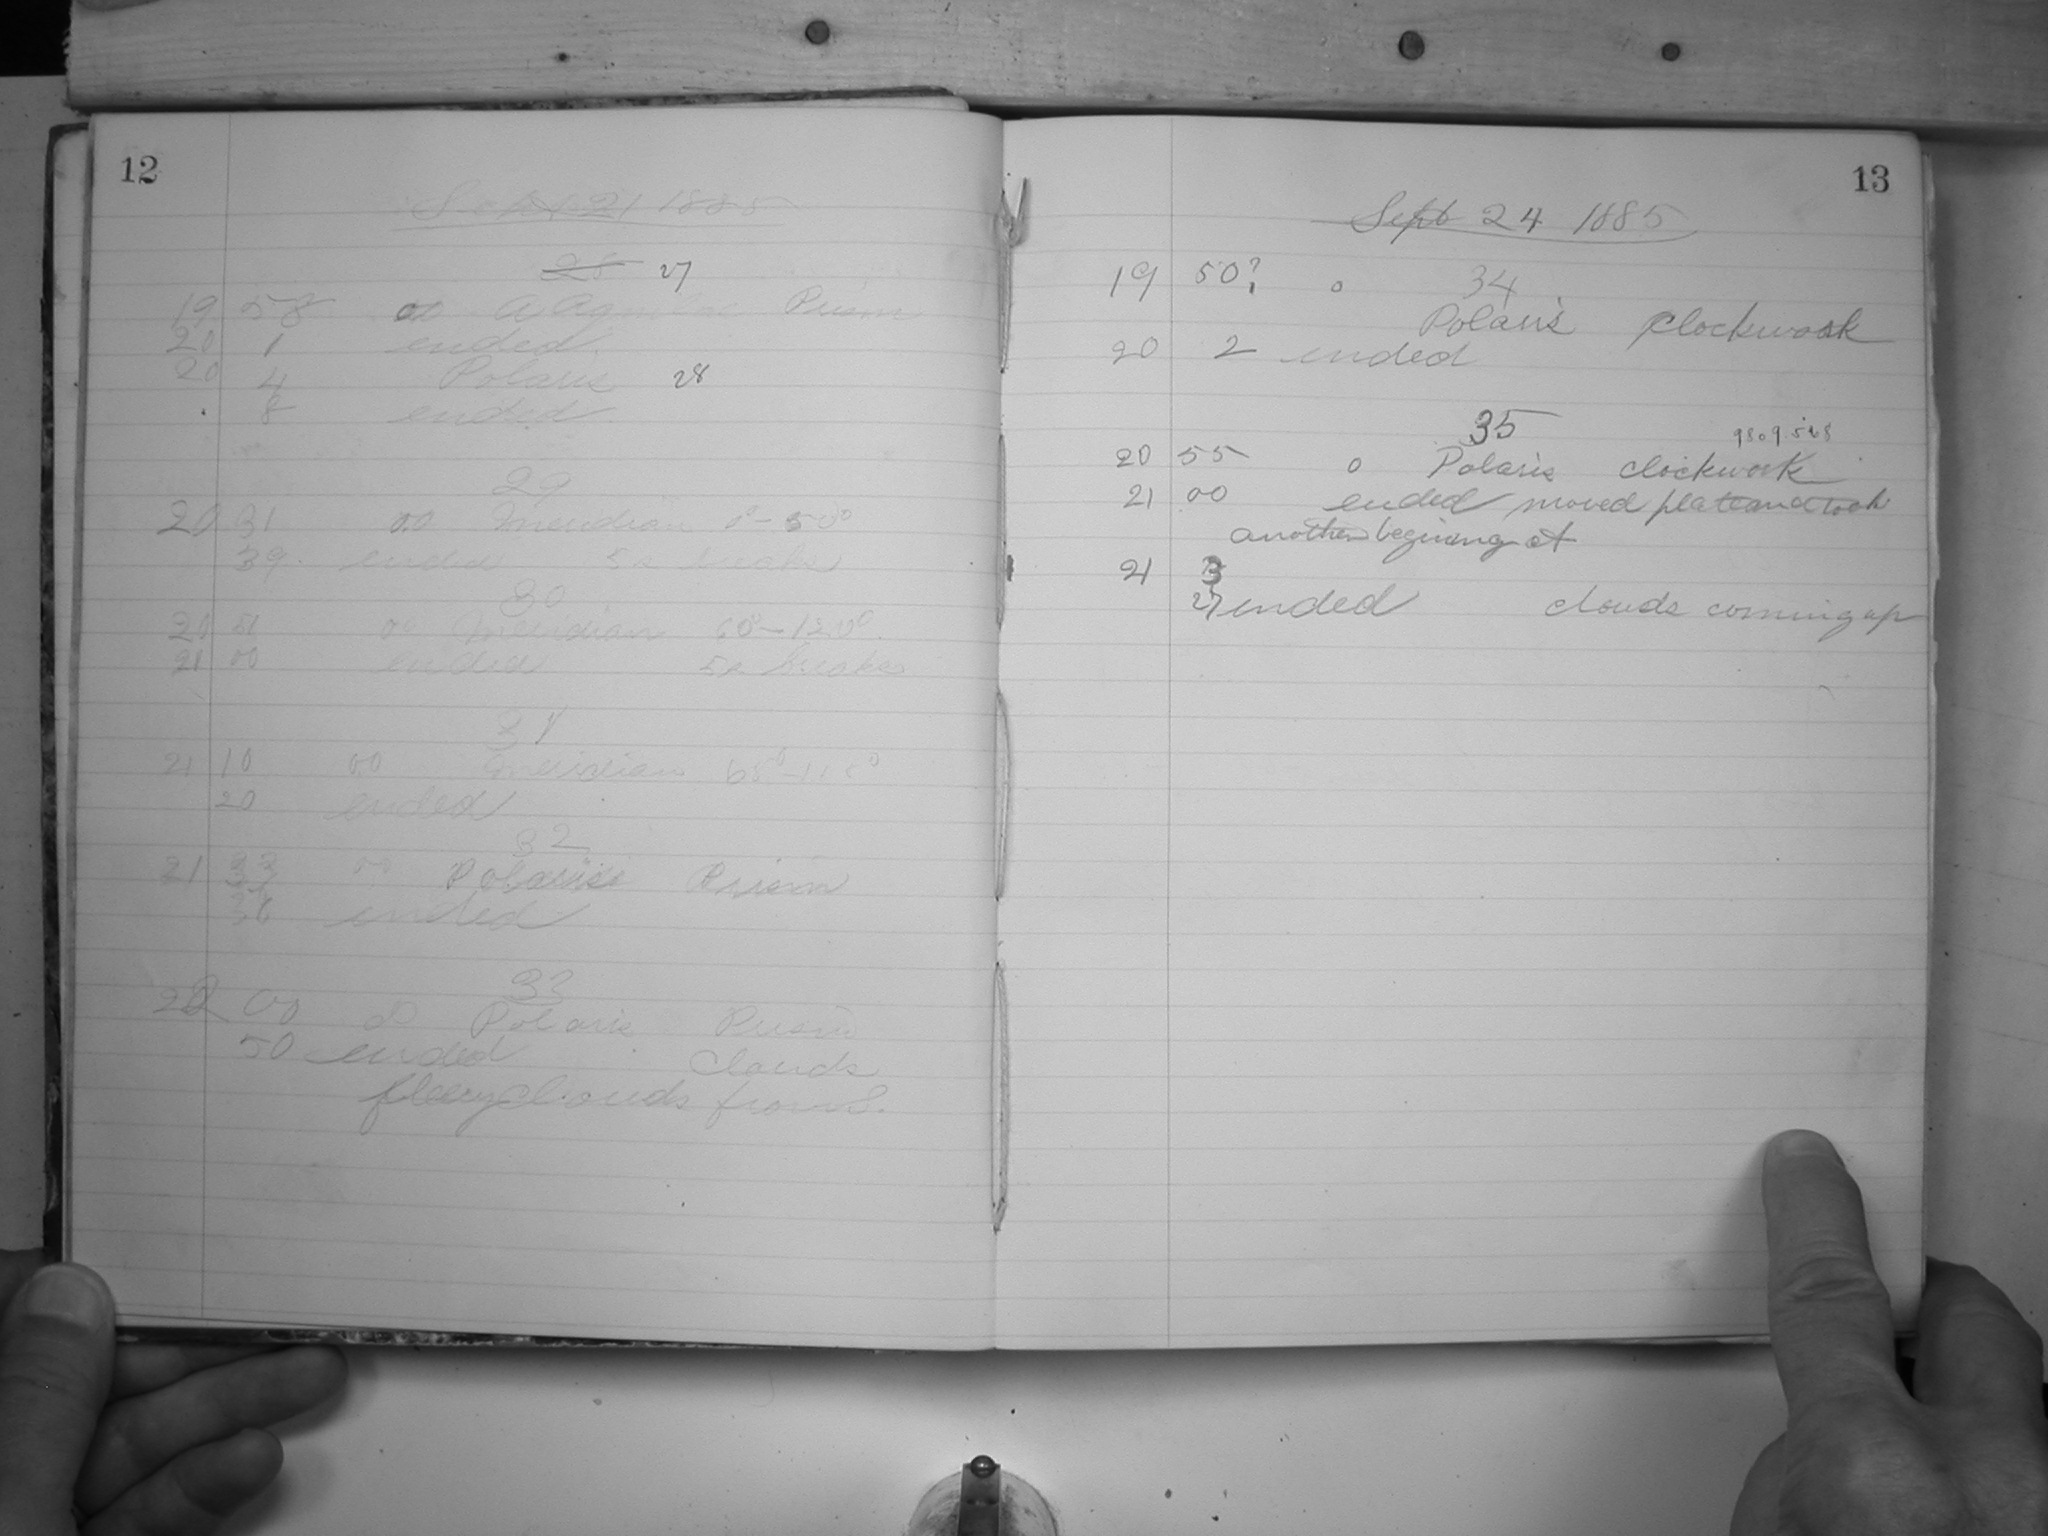 12
Sept 21 1885
28 27
19 58 00 a Aquilae Prism
20 1 ended
20 4 Polaris 28
8 ended
29
20 31 00 Meridian 0° - 50°
39 ended 5 breaks
30
20 51 00 Meridian 60° - 120°
21 00 ended 5 breaks
31
21 10 00 Meridian 65° - 115°
20 ended
32
21 33 00 Polaris Prism
36 ended
33
22 00 Polaris Prism
50 ended Clouds
fleecy clouds from S.
13
Sept 24 1885
19 50? 0 34
Polaris clockwork
20 2 ended
35
20 55 0 Polaris clockwork
21 00 ended moved plate and took
another beginning at
21 3
27 ended clouds coming up